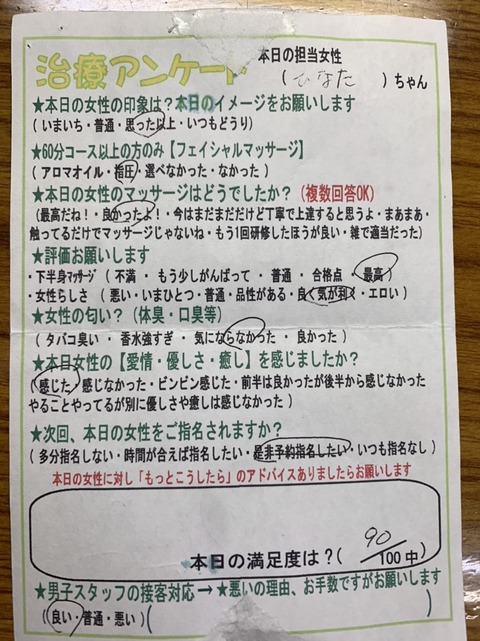 治療アンケート
本日の担当女性
( ひなた )ちゃん
★本日の女性の印象は?本日のイメージをお願いします
( いまいち・普通・思った以上・いつもどうり)
★60分コース以上の方のみ【フェイシャルマッサージ】
( アロマオイル・指圧・選べなかった・なかった )
★本日の女性のマッサージはどうでしたか?(複数回答OK)
(最高だね!・良かったよ!・今はまだまだだけど丁寧で上達すると思うよ・まあまあ・
触ってるだけでマッサージじゃないね・もう1回研修したほうが良い・雑で適当だった)
★評価お願いします
・下半身マッサージ ( 不満 ・ もう少しがんばって ・ 普通 ・ 合格点 ・ 最高 )
・女性らしさ ( 悪い・いまひとつ・普通・品性がある・良く気が利く・エロい )
★女性の匂い?(体臭・口臭等)
( タバコ臭い ・ 香水強すぎ ・ 気にならなかった ・ 良かった )
★本日女性の【愛情・優しさ・癒し】を感じましたか?
(感じた)感じなかった・ビンビン感じた・前半は良かったが後半から感じなかった
やることやってるが別に優しさや癒しは感じなかった )
★次回、本日の女性をご指名されますか?
( 多分指名しない・時間が合えば指名したい・是非予約指名したい・いつも指名なし )
本日の女性に対し「もっとこうしたら」のアドバイスありましたらお願いします
本日の満足度は?( 90/100中)
★男子スタッフの接客対応 → ★悪いの理由、お手数ですがお願いします
(良い・普通・悪い)( )